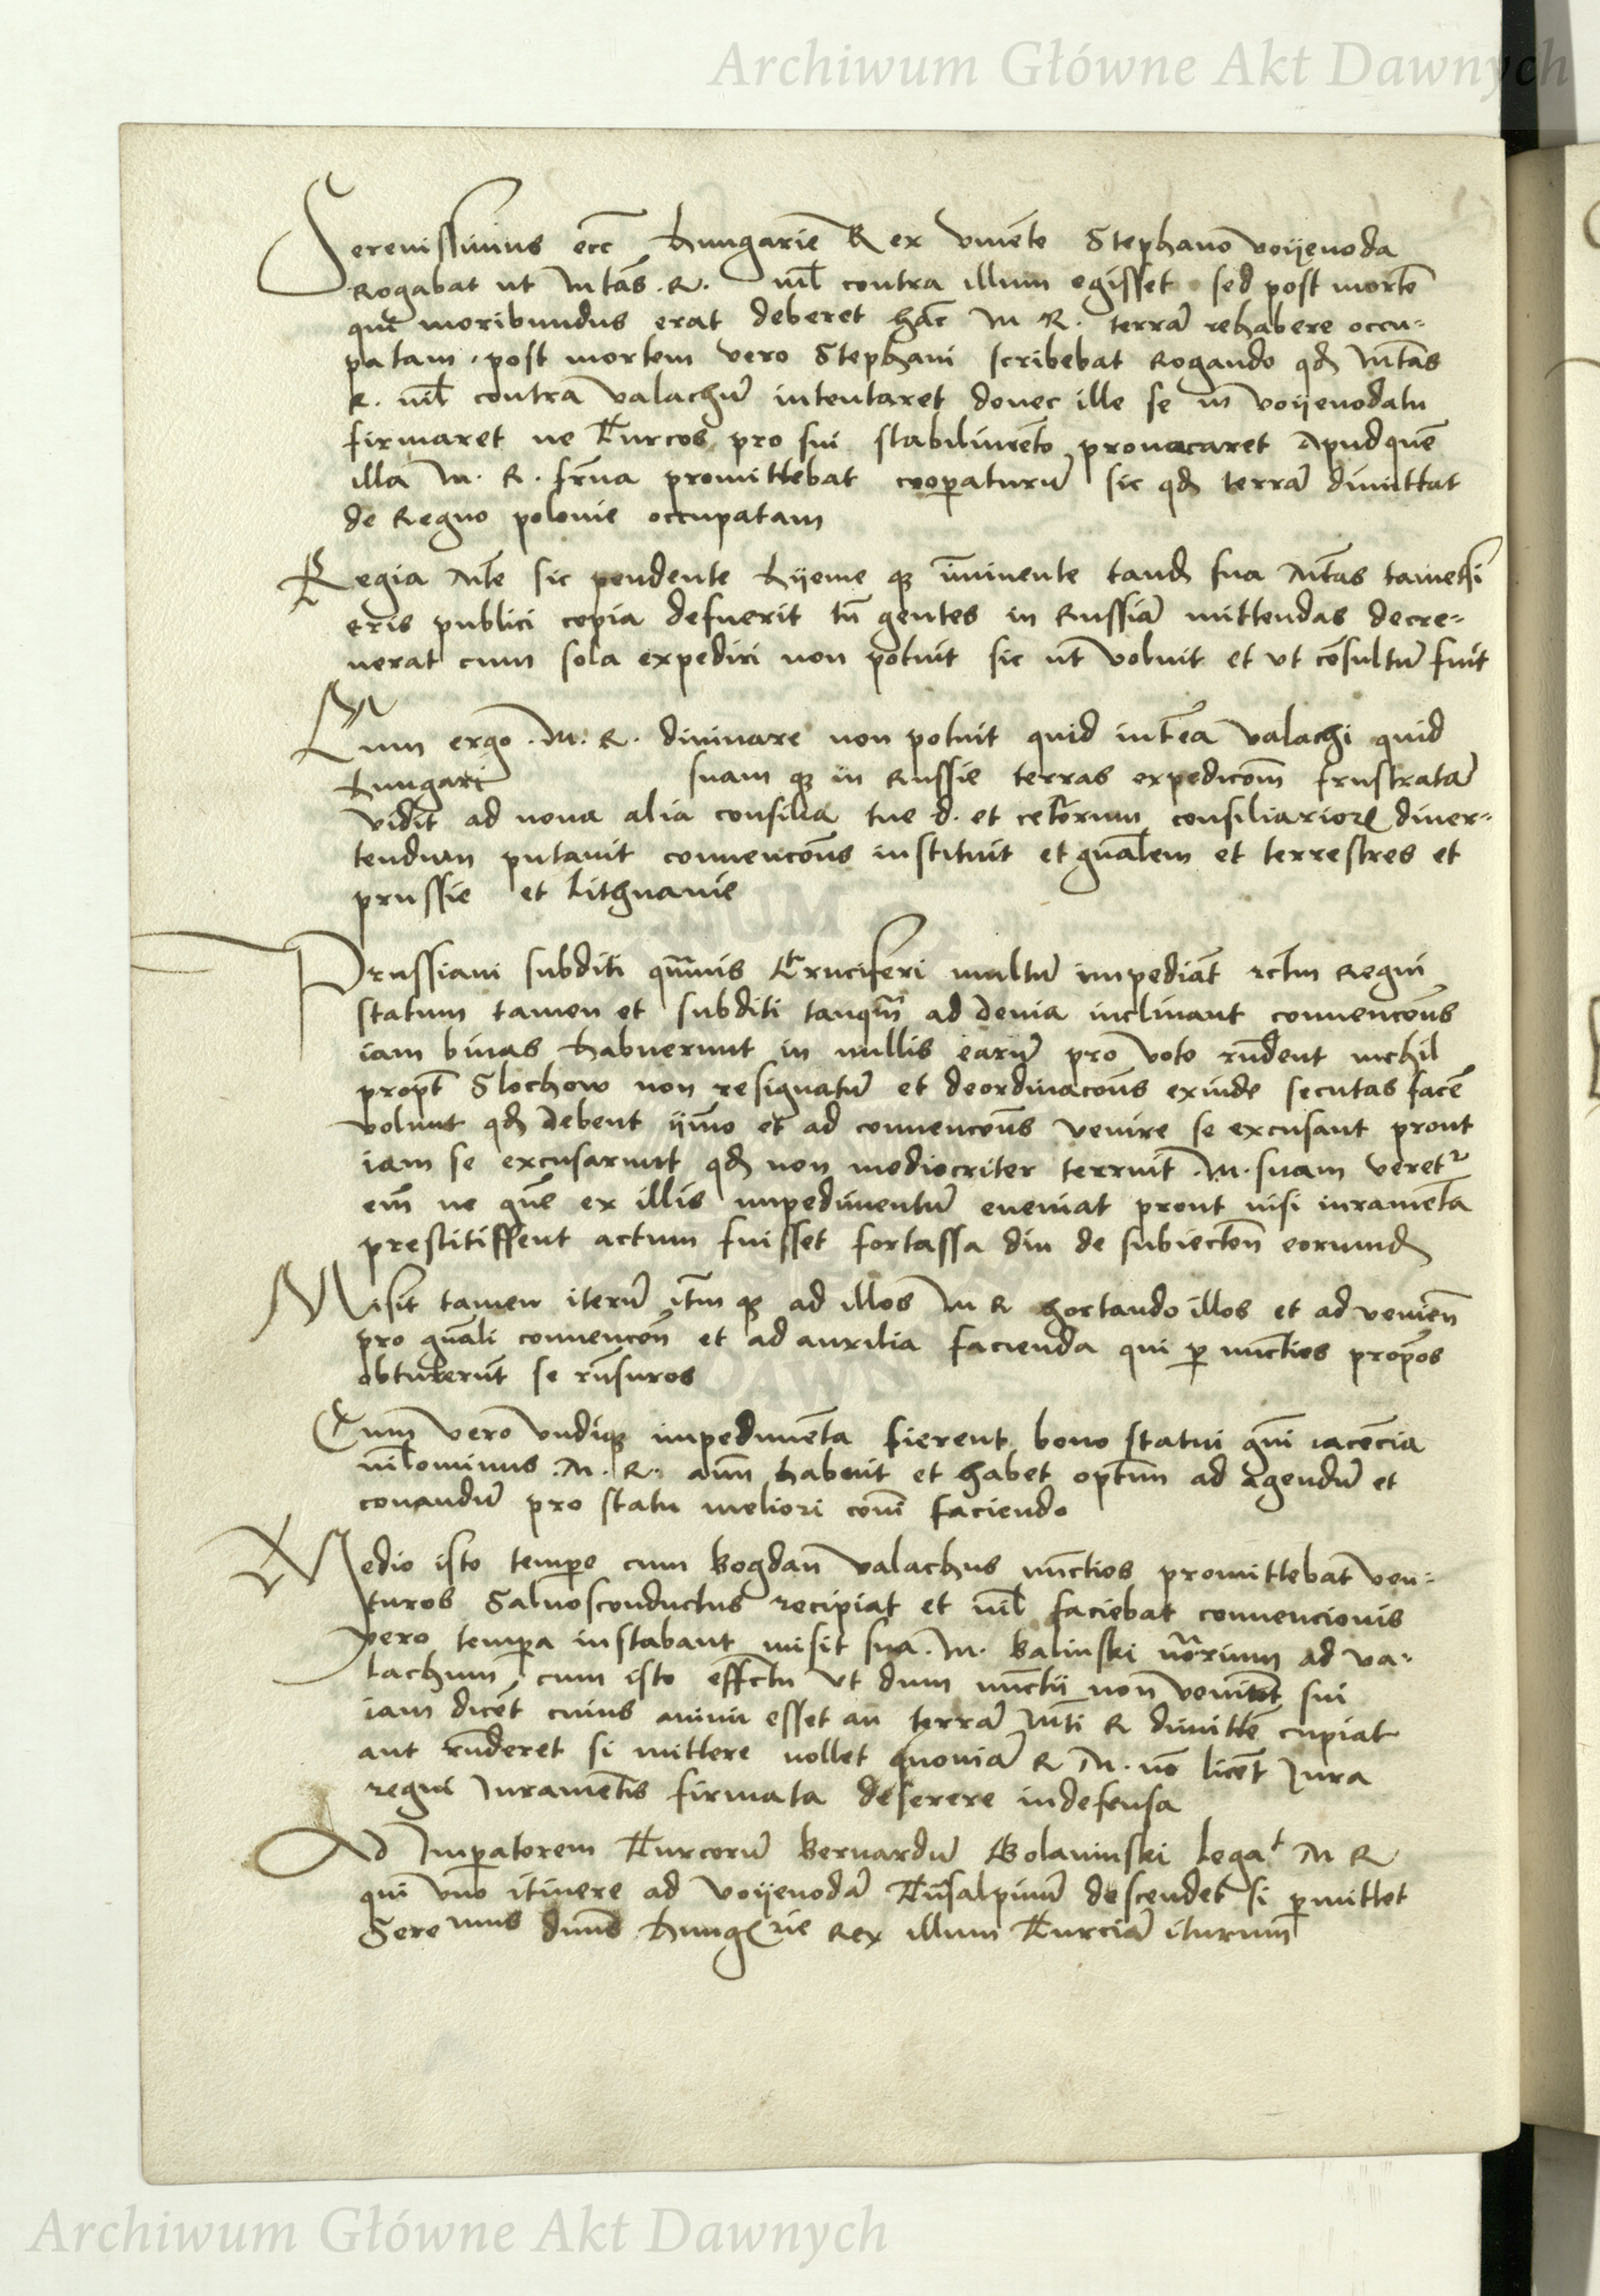 Archiwum Główne Akt Dawnych
Serenissimus etc̃ hungarie Rex viuẽte Stephano voyeuoda
Rogabat ut Mtas . R . nil contra illum egisset sed post mortẽ
qui moribundus erat deberet hãc M R . terrã rehabere occu-
patam . post mortem vero Stephani scribebat rogando qd Mtas
R . nil contra valachũ intentaret donec ille se in voyeuodatu
firmaret ne Turcos pro sui stabilimẽto prouocaret Apud quẽ
illa M . R . frña promittebat cooperaturũ sic qd terrã dimittat
de Regno polonie occupatam
Regia Mte sic pendente hyeme q̃ iminente tand sua Mtas tametsi
eris publici copia defuerit tñ gentes in Russiã mittendas decre-
uerat cum sola expediri non potuit sic ut voluit et vt cõsultũ fuit
Cum ergo . M . R . diuinare non potuit quid intẽa valachi quid
hungari suam q̃ in Russie terras expedicom̃ frustratã
vidit ad noua alia consilia tue d . et cetorum consiliarior diuer-
tendum putauit conuencoñs instituit et gñalem et terrestres et
prussie et Lithuanie
Prussiani subditi quãuis Cruciferi multũ impediãt Regni
statum tamen et subditi tanqm̃ ad deuia inclinant conuencoñs
iam binas habuerunt in nullis earũ pro voto rñdent nichil
propt Slochow non resignatũ et deordinacoñs exinde secutas facẽ
volunt qd debent ymo et ad conuencoñs venire se excusant prout
iam se excusarunt qd non mediocriter terruit . M . suam veretr
em̃ ne quẽ ex illis impedimentũ eueniat prout nisi iuramẽta
prestitissent actum fuisset fortassa diu de subiectoñ eorumd
Misit tamen iterũ itm̃ q̃ ad illos M R hortando illos et ad venieñ
pro gñali conuencoñ et ad auxilia facienda qui p nũctios propõs
obtulerũt se rñsuros
Cum vero vndiq̃ impedimẽta fierent bono statui gñi iacẽcia
nilominus . M . R . aĩm habuit et habet optim̃ ad agendũ et
conandũ pro statu meliori coĩ faciendo
Medio isto tempore cum Bogdañ valachus nũctios promittebat ven-
turos Saluosconductus recipiat et nil faciebat conuencionis
vero tempora instabant misit sua . M . Balinski nõrium ad va-
lachum cum isto effctu vt dum nũctii non venirẽt sui
iam dicẽt cuius animi esset an terrã Mti R dimittẽ cupiat
aut rñderet si mittere nollet quoniã R M . nõ licet Jura
regni Juramẽtis firmata deserere indefensa
Ad Imperatorem Turcorũ Bernardũ Golaminski Legat M R
qui vno itinere ad voyeuodã Trãsalpinũ descendet si pmittet
Sere mus dñus hungarie Rex illum Turciã iturum
Archiwum Główne Akt Dawnych